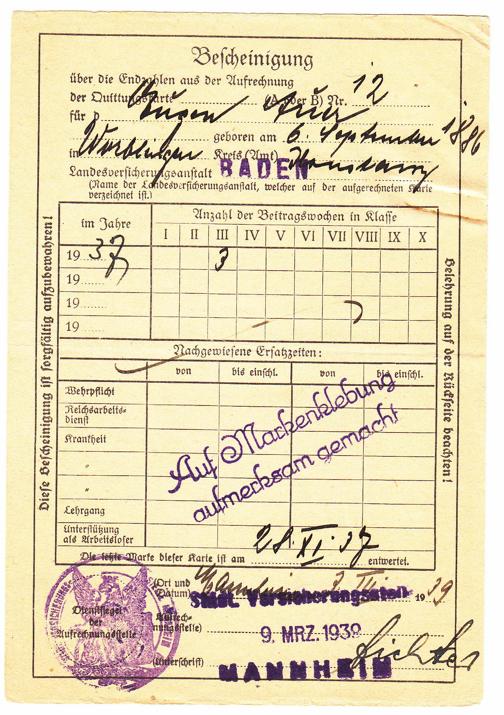 Bescheinigung
über die Endzahlen aus der Aufrechnung
der Quittungskarte (A oder B) Nr. 12
für Eugen
geboren am 6. September 1886
in Kreis (Amt) Konstanz
Landesversicherungsanstalt BADEN
(Name der Landesversicherungsanstalt, welcher auf der aufgerechneten Karte
verzeichnet ist.)
im Jahre
Anzahl der Beitragswochen in Klasse
I II III IV V VI VII VIII IX X
19 37 3
19
19
19
Nachgewiesene Ersatzzeiten:
von bis einschl. von bis einschl.
Wehrpflicht
Reichsarbeits-
dienst
Krankheit
"
"
Lehrgang
Unterstützung
als Arbeitsloser
Auf Markenklebung
aufmerksam gemacht
Die letzte Marke dieser Karte ist am 28. XI. 37 entwertet.
(Ort und
Datum) Mannheim 1939
Städt. Versicherungsstelle
Dienstsiegel
der
Aufrechnungsstelle
(Aufrech-
nungsstelle)
9. MRZ. 1939
(Unterschrift)
MANNHEIM
Diese Bescheinigung ist sorgfältig aufzubewahren!
Belehrung auf der Rückseite beachten!